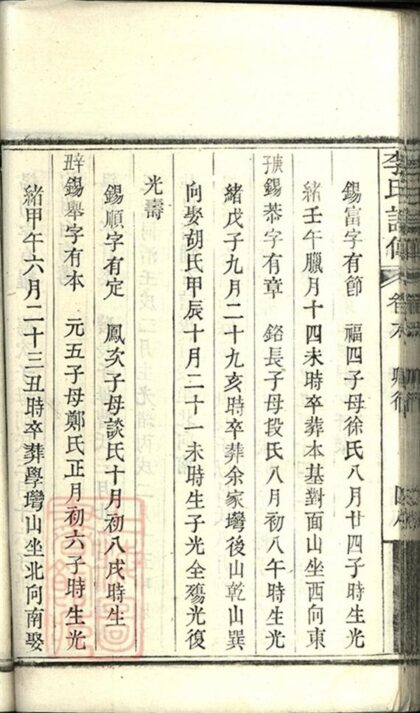 李氏譜傳
卷
錫富字有節 福四子母徐氏八月廿四子時生光
緒壬午臘月十四未時卒葬本基對面山坐西向東
庚子錫恭字有章 銘長子母段氏八月初八午時生光
緒戊子九月二十九亥時卒葬余家壪後山乾山巽
向娶胡氏甲辰十月二十一未時生子光全殤光復
光壽
錫順字有定 鳳次子母談氏十月初八戌時生
辛丑錫舉字有本 元五子母鄭氏正月初六子時生光
緒甲午六月二十三丑時卒葬學壪山坐北向南娶